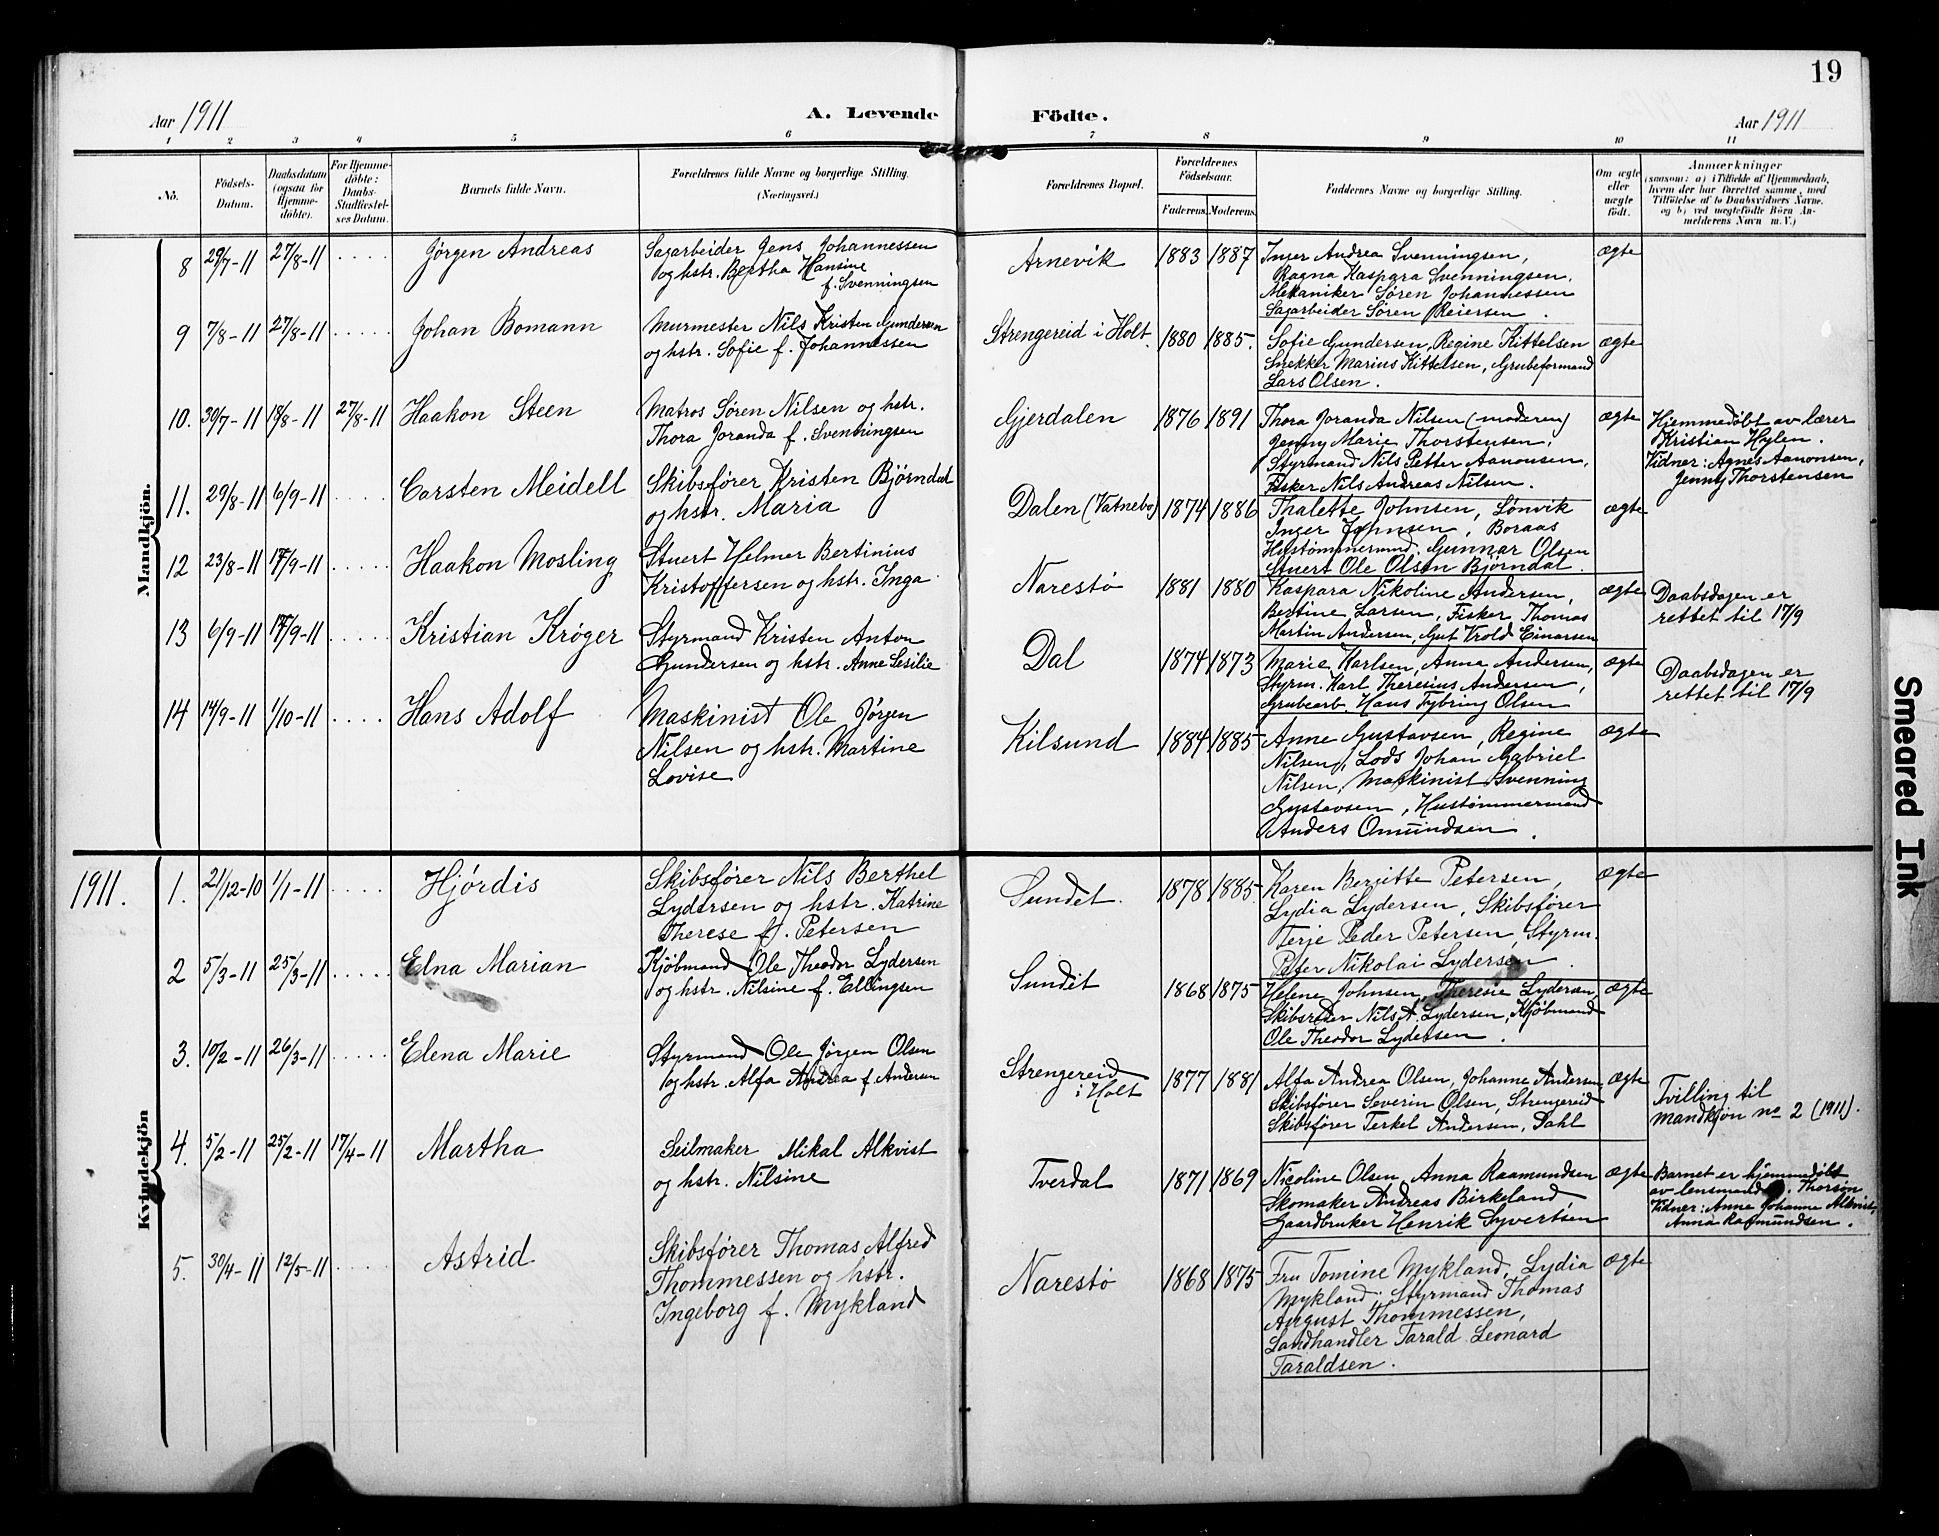 19
Aar 1911 A. Levende Födte. Aar 1911
1 2 3 4 5 6 7 8 9 10 11
No. Födsels-Datum. Daabsdatum (ogsaa for Hjemme-döbte). For Hjemme-döbte: Daabs-Stadfæstel-ses Datum. Barnets fulde Navn. Forældrenes fulde Navne og borgerlige Stilling. (Næringsvei.) Forældrenes Bopæl. Forældrenes Födselsaar. Faderens. Moderens. Faddernes Navne og borgerlige Stilling. Om ægte eller uægte födt. Anmærkninger
(saasom: a) i Tilfælde af Hjemmedaab, hvem der har forrettet samme, med Tilföielse af to Daabsvidners Navne. og b) ved uægtefödte Börn An-melderens Navn m. V.)
Mandkjön.
8 29/7-11 27/8-11 ..... Jørgen Andreas
Sagarbeider Jens Johannessen
og hstr. Bertha Hansine
f. Svenningsen
Arnevik 1883 1887
Inger Andrea Svenningsen,
Ragna Kaspara Svenningsen,
Mekaniker Søren Johannessen
Sagarbeider Søren Reiersen.
ægte
9 7/8-11 27/8-11 ..... Johan Bomann
Murmester Nils Kristen Gundersen
og hstr. Sofie f. Johannessen
Strengereid i Holt. 1880 1885.
Sofie Gundersen, Regine Kittelsen
Snekker Marius Kittelsen, Grubeformand
Lars Olsen.
ægte
10. 30/7-11 18/8-11 27/8-11 Haakon Steen
Matros Søren Nilsen og hstr.
Thora Joranda f. Svenningsen
Gjerdalen 1876 1891
Thora Joranda Nilsen (moderen)
Jenny Marie Thorstensen,
Styrmand Nils Petter Aanonsen,
Fisker Nils Andreas Nilsen.
ægte
Hjemmedøbt av lærer
Kristian Hylen.
Vidner: Agnes Aanonsen,
Jenny Thorstensen
11. 29/8-11 6/9-11 ..... Carsten Meidell
Skibsfører Kristen Bjørndal
og hstr. Maria
Dalen (Vatnebo) 1874 1886
Thalette Johnsen, Sønvik
Inger Johnsen, Boraas
Hustømmermd. Gunnar Olsen
Stuert Ole Olsen Bjørndal.
ægte
12 23/8-11 17/9-11 ..... Haakon Mosling
Stuert Helmer Bertinius
Kristoffersen og hstr. Inga.
Narestø 1881 1880
Kaspara Nikoline Andersen,
Bertine Larsen, Fisker Thomas
Martin Andersen, Gut Vrold Einarsen
ægte
Daabsdagen er
rettet til 17/9
13 6/9-11 17/9-11 ..... Kristian Krøger
Styrmand Kristen Anton
Gundersen og hstr. Anne Sesilie
Dal 1874 1873
Marie Karlsen, Anna Andersen,
Styrm. Karl Theresius Andersen,
Grubearb. Hans Fybring Olsen
ægte
Daabsdagen er
rettet til 17/9
14 14/9-11 1/10-11 ..... Hans Adolf
Maskinist Ole Jørgen
Nilsen og hstr. Martine
Lovise
Kilsund 1884 1885
Anne Gustavsen, Regine
Nilsen, Lods Johan Gabriel
Nilsen, Maskinist Svenning
Gustavsen, Hustømmermand
Anders Omundsen.
ægte
1911.
Kvindekjön
1. 21/12-10 1/1-11 ..... Hjørdis
Skibsfører Nils Berthel
Lydersen og hstr. Katrine
Therese f. Petersen
Sundet. 1878 1885.
Karen Bergitte Petersen,
Lydia Lydersen, Skibsfører
Terje Peder Petersen, Styrm.
Peter Nikolai Lydersen.
ægte
2 5/3-11 25/3-11 ..... Elna Marian
Kjøbmand Ole Theodor Lydersen
og hstr. Nilsine f. Ellingsen
Sundet 1868 1875
Helene Johnsen, Theresie Lydersen,
Skibsreder Nils A. Lydersen, Kjøbmand
Ole Theodor Lydersen.
ægte
3. 10/2-11 26/3-11 ..... Elena Marie
Styrmand Ole Jørgen Olsen
og hstr. Alfa Andrea f. Andersen
Strengereid
i Holt 1877 1881
Alfa Andrea Olsen, Johanne Andersen,
Skibsfører Severin Olsen, Strengereid
Skibsfører Terkel Andersen, Dahl
ægte
Tvilling til
mandkjøn no 2 (1911).
4. 5/2-11 25/2-11 17/4-11 Martha
Seilmaker Mikal Alkvist
og hstr. Nilsine
Tverdal 1871 1869
Nicoline Olsen, Anna Raamundsen
Skomaker Andreas Birkeland
Gaardbruker Henrik Syvertsen
ægte
Barnet er hjemmedøbt
av lensmand Thorsøn
Vidner: Anne Johanne Alkvist,
Anna Raamundsen.
5. 30/4-11 12/5-11 ..... Astrid
Skibsfører Thomas Alfred
Thommessen og hstr.
Ingeborg f. Mykland
Narestø 1868 1875
Fru Tomine Mykland, Lydia
Mykland. Styrmand Thomas
August Thommessen,
Landhandler Tarald Leonard
Taraldsen.
ægte
Smeared Ink